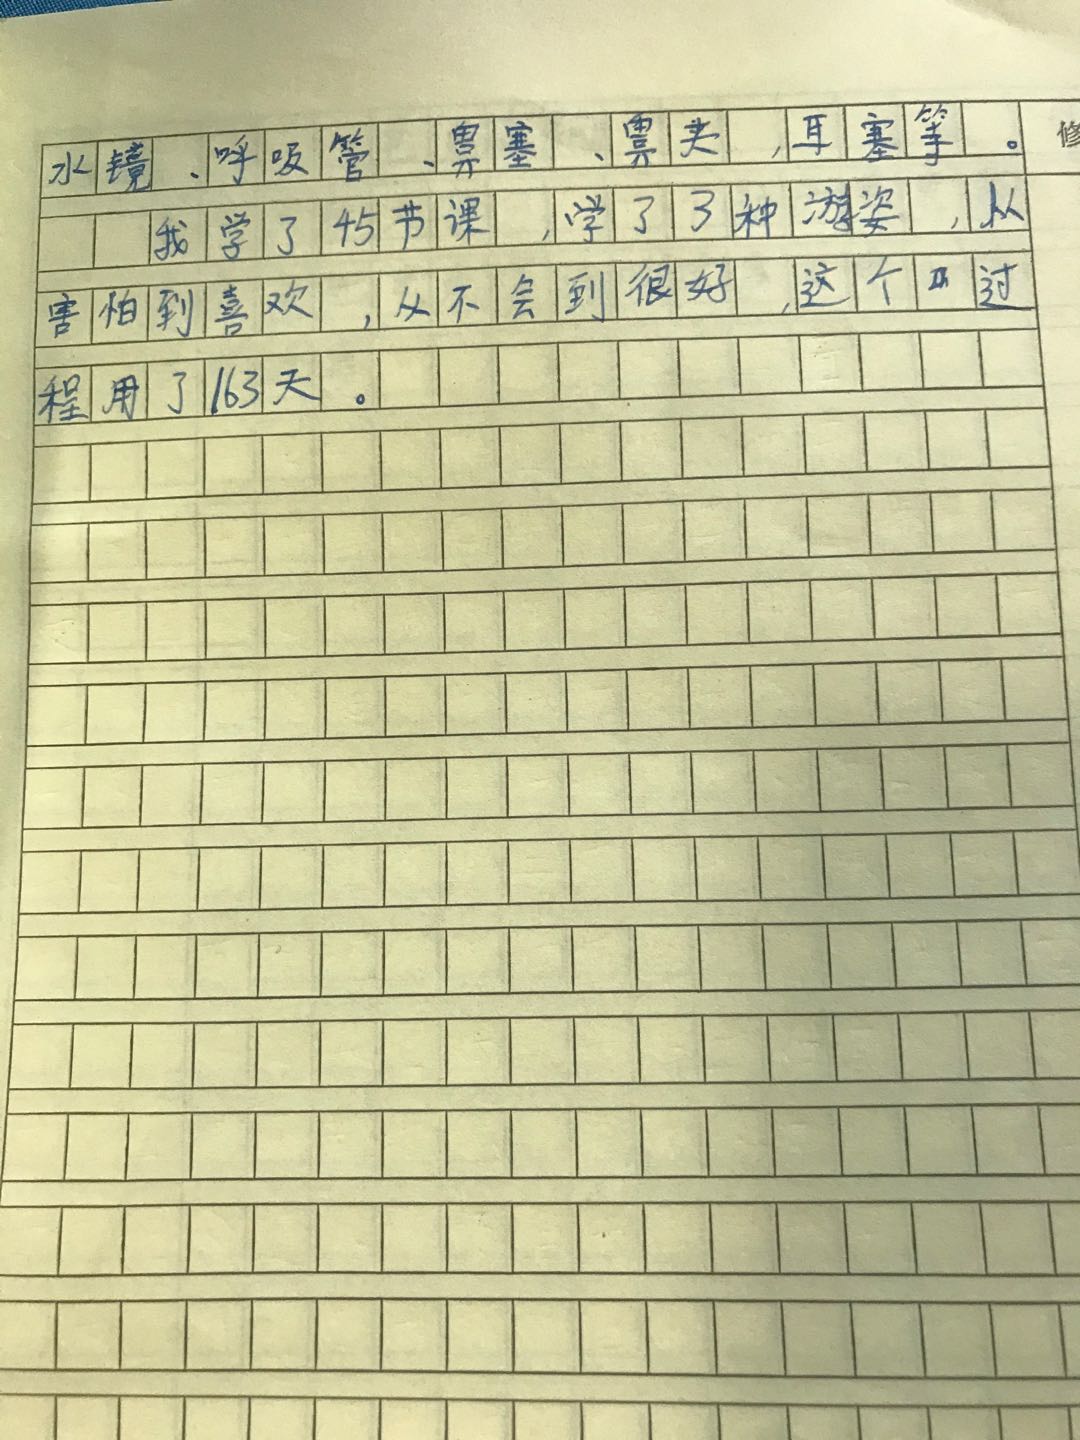 水镜、呼吸管、鼻塞、鼻夹,耳塞等。
我学了45节课,学了3种游姿,从
害怕到喜欢,从不会到很好,这个过
程用了163天。
修